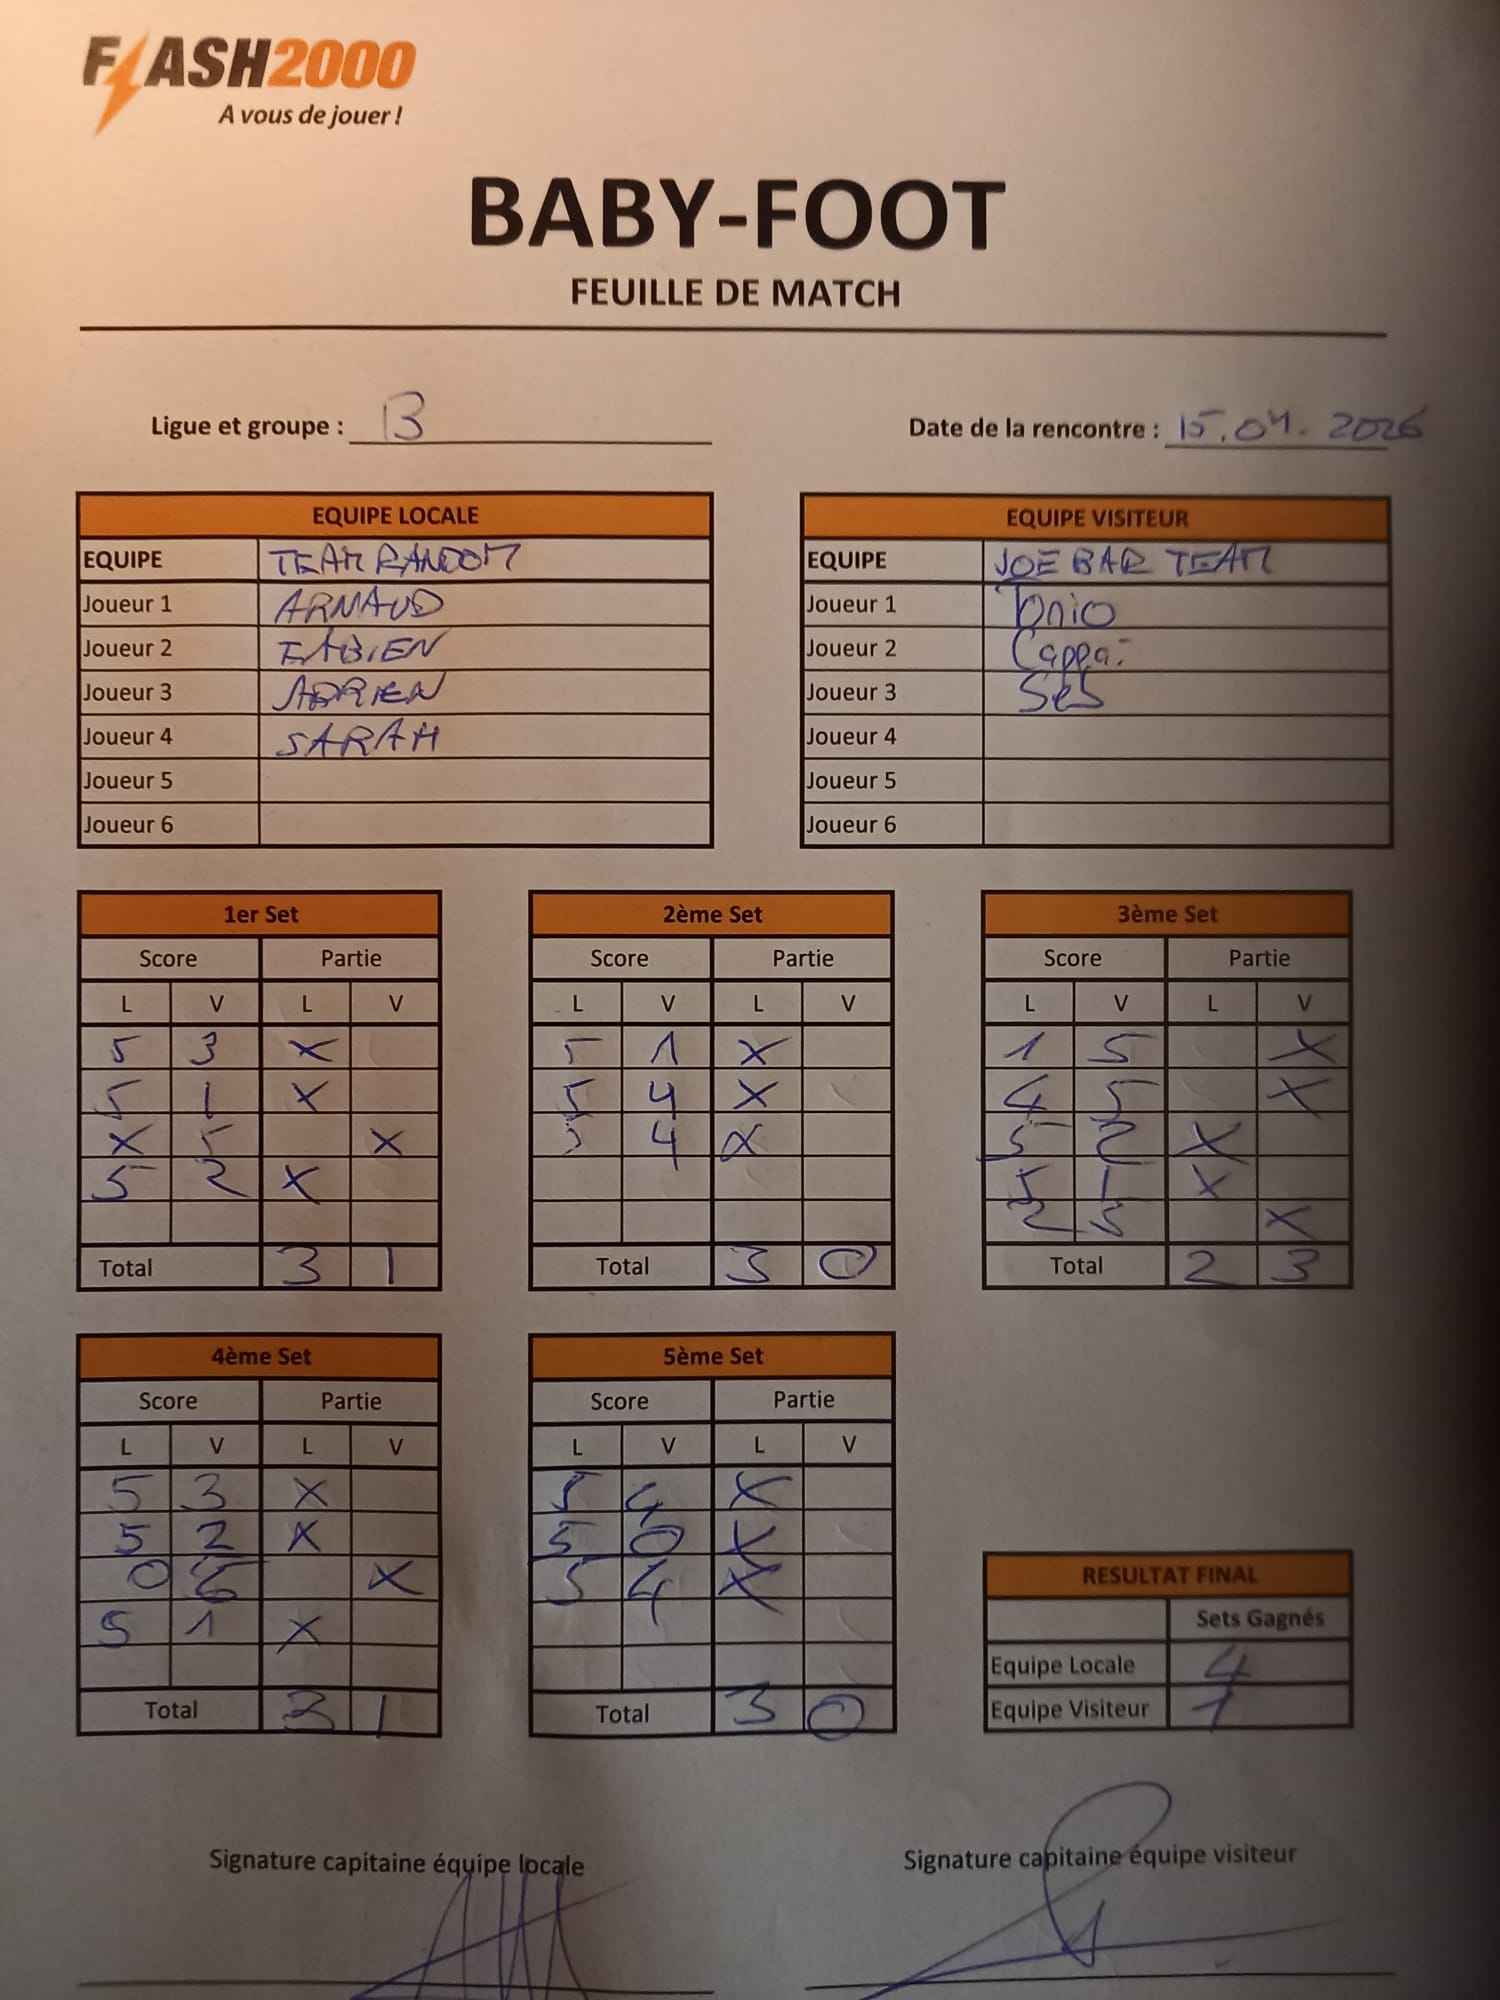 FLASH2000
A vous de jouer !
BABY-FOOT
FEUILLE DE MATCH
Ligue et groupe : B
Date de la rencontre : 15.04.2026
EQUIPE LOCALE
EQUIPE TEAM RANDOM
Joueur 1 ARNAUD
Joueur 2 FABIEN
Joueur 3 ADRIEN
Joueur 4 SARAH
Joueur 5
Joueur 6
EQUIPE VISITEUR
EQUIPE JOE BAR TEAM
Joueur 1 Tonio
Joueur 2 Cappai
Joueur 3 Seb
Joueur 4
Joueur 5
Joueur 6
1er Set
Score Partie
L V L V
5 3 X
5 1 X
X 5 X
5 2 X
Total 3 1
2ème Set
Score Partie
L V L V
5 1 X
5 4 X
5 4 X
Total 3 0
3ème Set
Score Partie
L V L V
1 5 X
4 5 X
5 2 X
5 1 X
2 5 X
Total 2 3
4ème Set
Score Partie
L V L V
5 3 X
5 2 X
0 5 X
5 1 X
Total 3 1
5ème Set
Score Partie
L V L V
5 4 X
5 0 X
5 4 X
Total 3 0
RESULTAT FINAL
Sets Gagnés
Equipe Locale 4
Equipe Visiteur 1
Signature capitaine équipe locale
Signature capitaine équipe visiteur